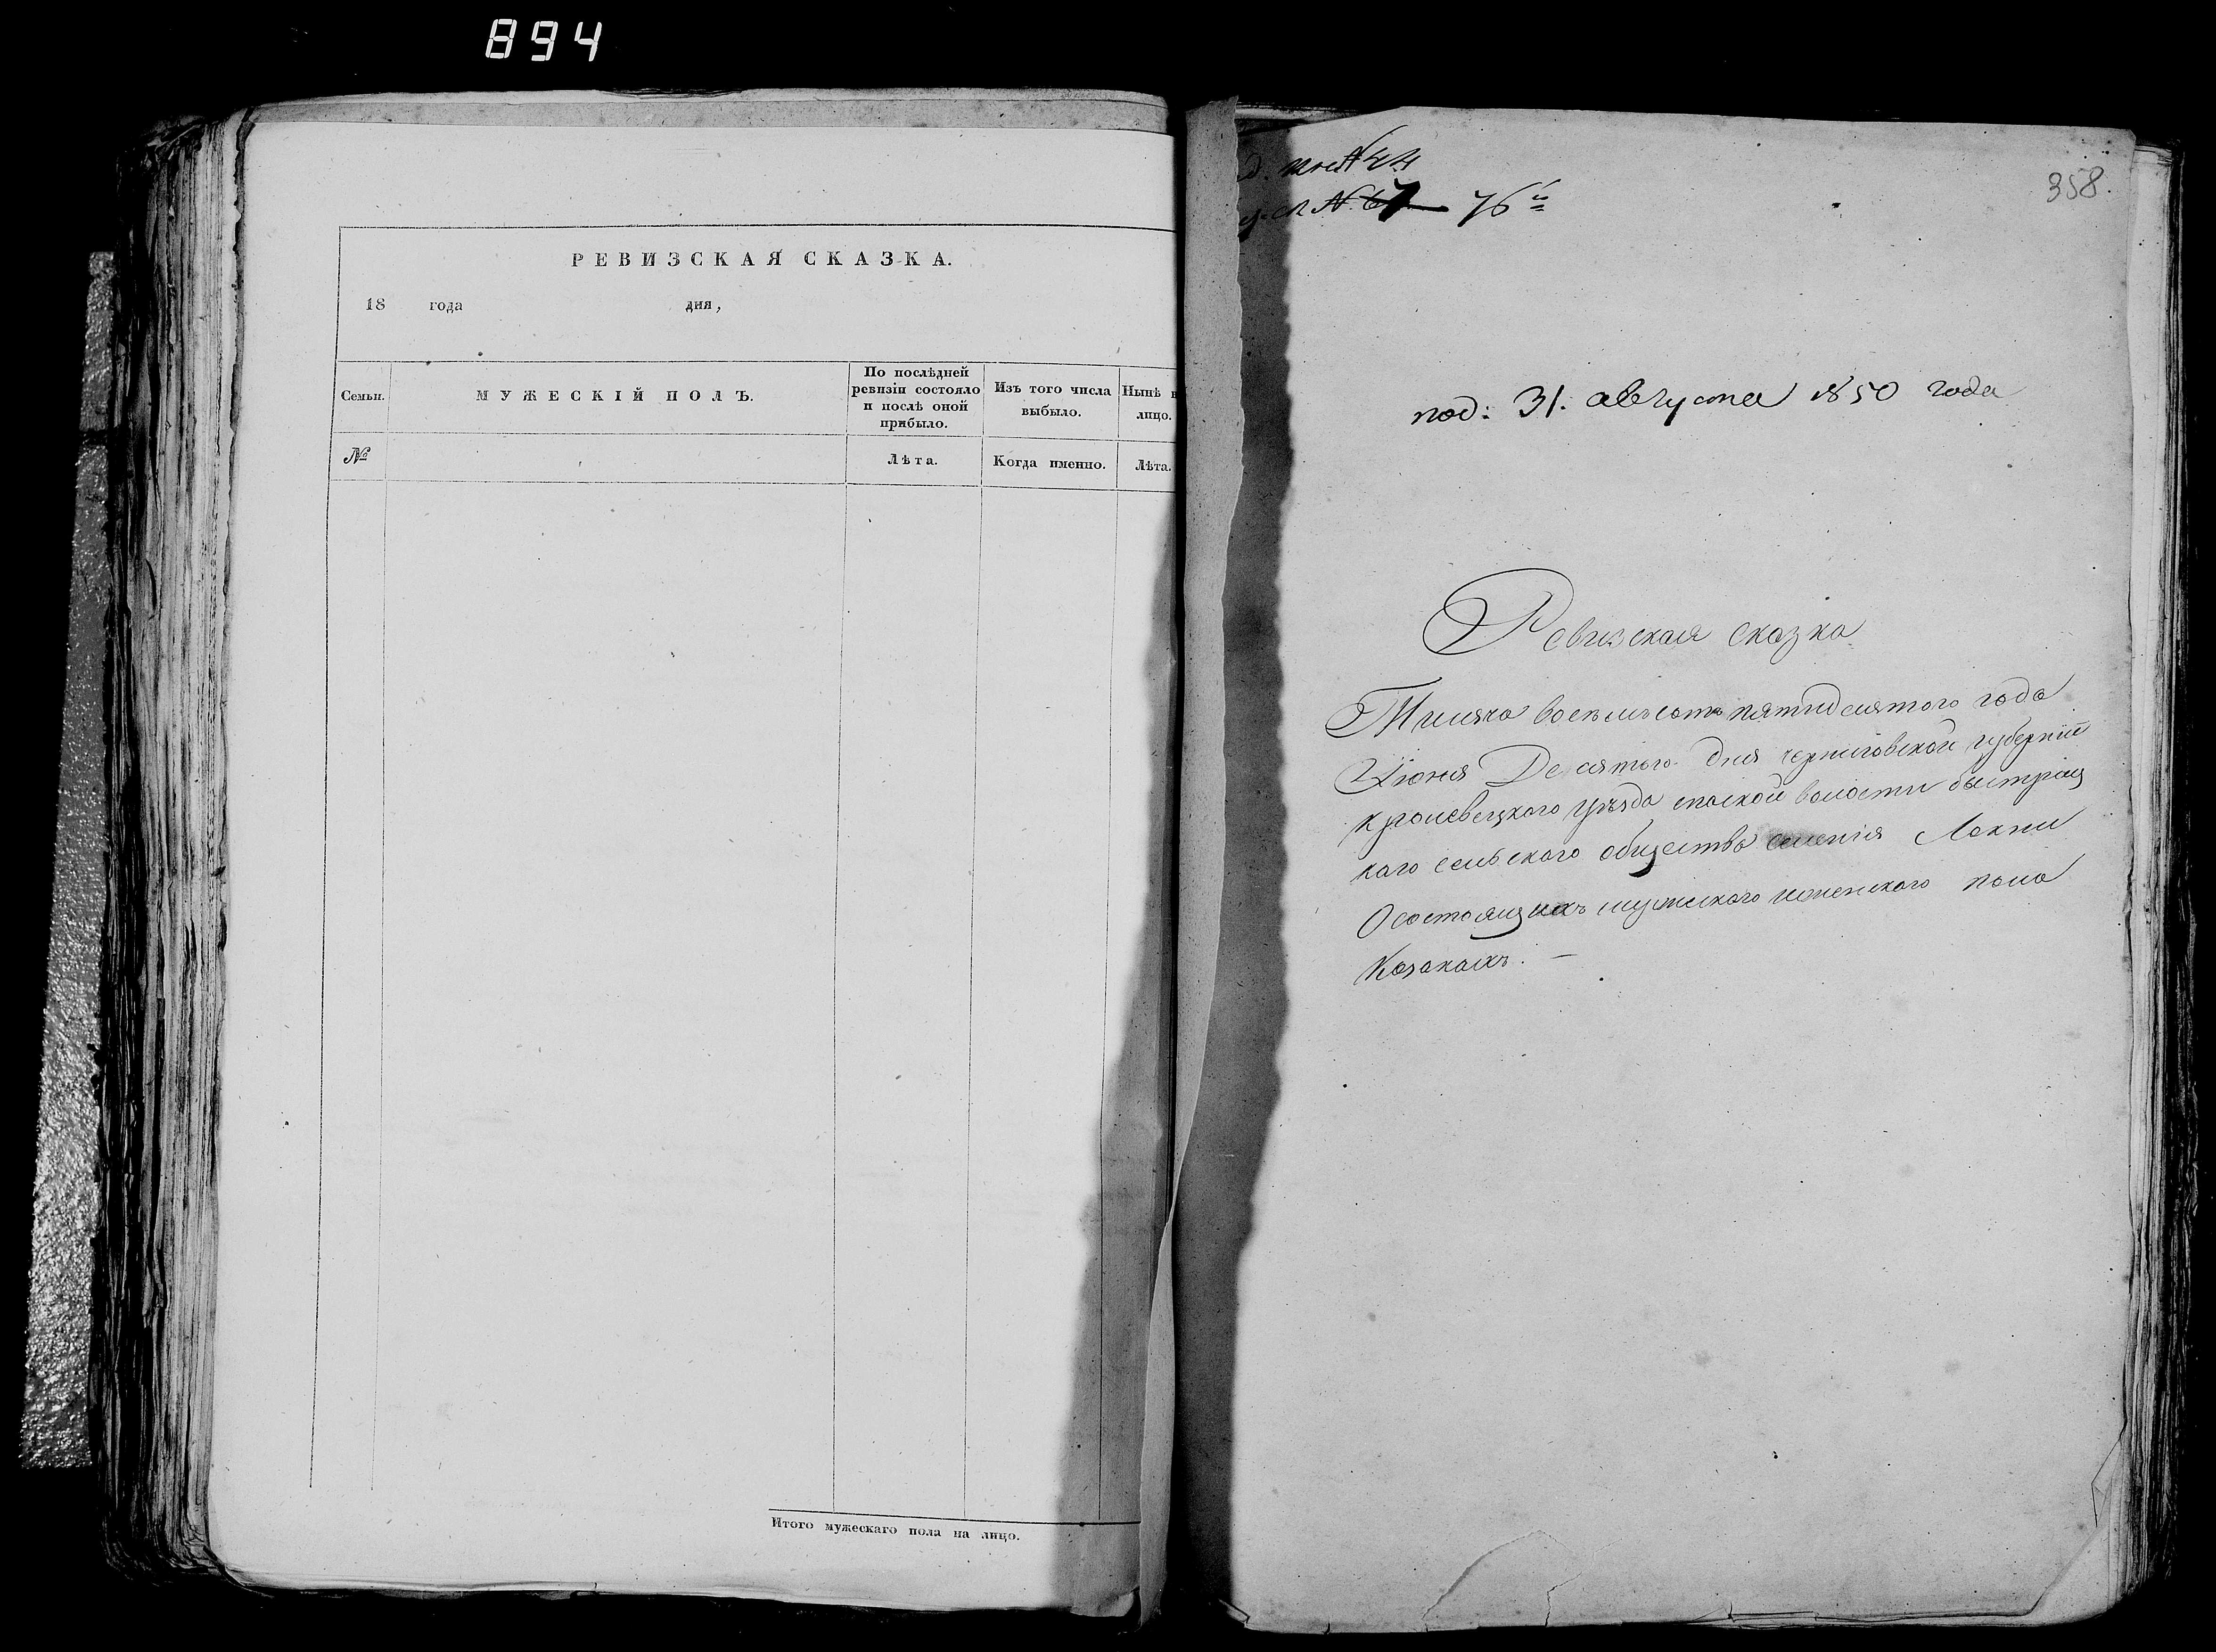 894
РЕВИЗСКАЯ СКАЗКА.
18 года дня,
Семьи.
МУЖЕСКІЙ ПОЛЪ.
По послѣдней
ревизіи состояло
и послѣ оной
прибыло.
Изъ того числа
выбыло.
Нынѣ н
лицо.
№
Лѣта.
Когда именно.
Лѣта.
Итого мужескаго пола на лицо.
76й
358.
под: 31. августа 1850 года
Ревизская сказка
Тысяча восемьсотъ пятидесятого года
Іюня Десятого дня черниговской губерніи
кролевецкого уѣзда спаской волости быстриц
каго сельского общества селенія Локни
О состоящихъ мужеского иженского пола
Козакахъ. —